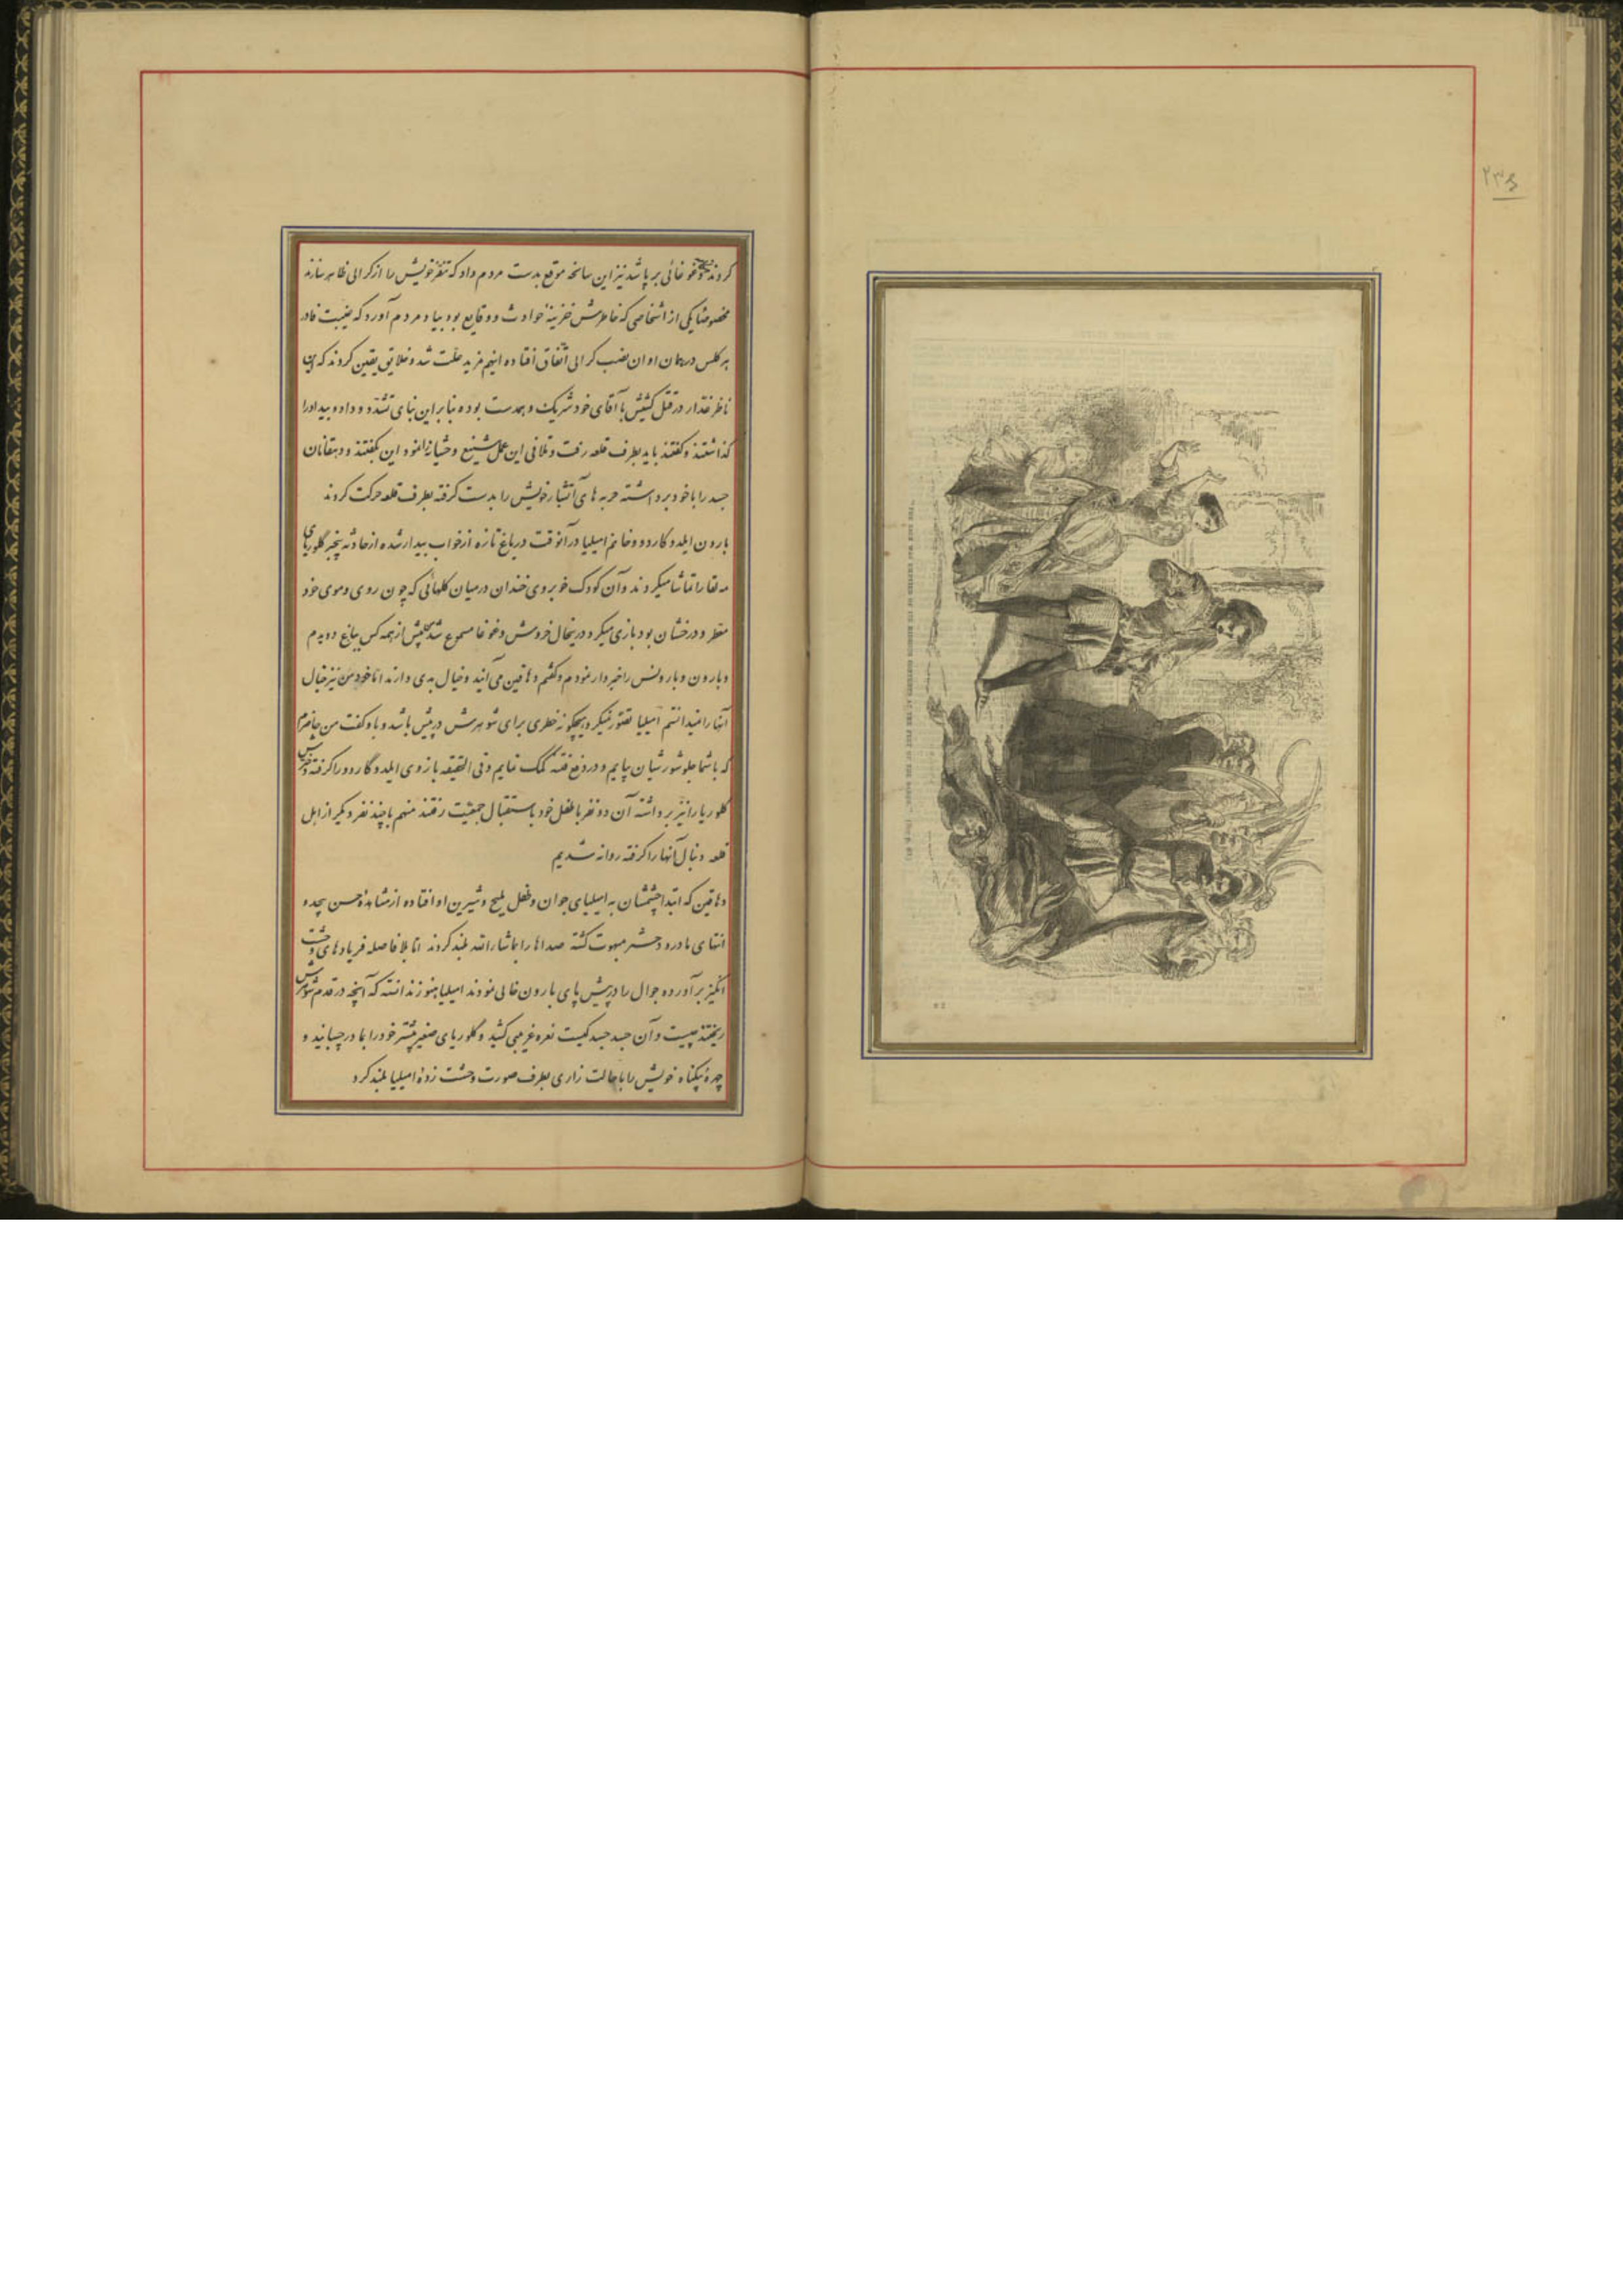 ۲۳۶
کردند و غوغائی برپا شد نیز این سانحه موقع بدست مردم داد که تنفر خویش را از کرالی ظاهر سازند
مخصوصا یکی از اشخاصی که خاطرش خزینهٔ حوادث و وقایع بود بیاد مردم آورد که غیبت فادر
برکلس در همان اوان نصب کرالی اتفاق افتاده اینهم مزید علت شد و خلایق یقین کردند که این
ناظر غدار در قتل کشیش با آقای خود شریک و همدست بوده بنابراین بنای تشدد و داد و بیداد را
گذاشتند و گفتند باید بطرف قلعه رفت و تلافی این عمل شنیع وحشیانه را نمود این بگفتند و دهقانان
جسد را با خود برداشته حربه های آتشبار خویش را بدست گرفته بطرف قلعه حرکت کردند
بارون ایلدوکاردو و خانم امیلیا در آنوقت در باغ تازه از خواب بیدار شده از حادثه بیخبر گلوریای
مه لقا را تماشا میکردند و آن کودک خوبروی خندان در میان گلهائی که چون روی و موی خود
معطر و درخشان بود بازی میکرد در ینحال خروش و غوغا مسموع شد پیش از همه کس بباغ دویدم
و بارون و بارونس را خبردار نمودم و گفتم دهاقین می آیند و خیال بدی دارند اما خود من نیز خیال
آنها را نمیدانستم امیلیا تصور نمیکرد هیچگونه خطری برای شوهرش در پیش باشد و باو گفت من حاضرم
که با شما جلو شورشیان بیایم و در دفع فتنه کمک نمایم و فی الحقیقه بازوی ایلدوگاردو را گرفته دخترش
گلوریا را نیز برداشته آن دو نفر با طفل خود باستقبال جمعیت رفتند منهم با چند نفر دیگر از اهل
قلعه دنبال آنها را گرفته روانه شدیم
دهاقین که ابتدا چشمشان به امیلیای جوان و طفل ملیح و شیرین او افتاده از مشاهدهٔ حسن بیحد و
انتهای مادر و دختر مبهوت گشته صداها را بماشاءالله بلند کردند اما بلافاصله فریادهای وحشت
انگیز برآورده جوال را در پیش پای بارون خالی نمودند امیلیا هنوز ندانسته که آنچه در قدم شوهرش
ریختند چیست و آن جسد جسد کیست نعره غریبی کشید و گلوریای صغیر بیشتر خود را بمادر چسبانید و
چهرهٔ بیگناه خویش را با حالت زاری بطرف صورت وحشت زدهٔ امیلیا بلند کرد